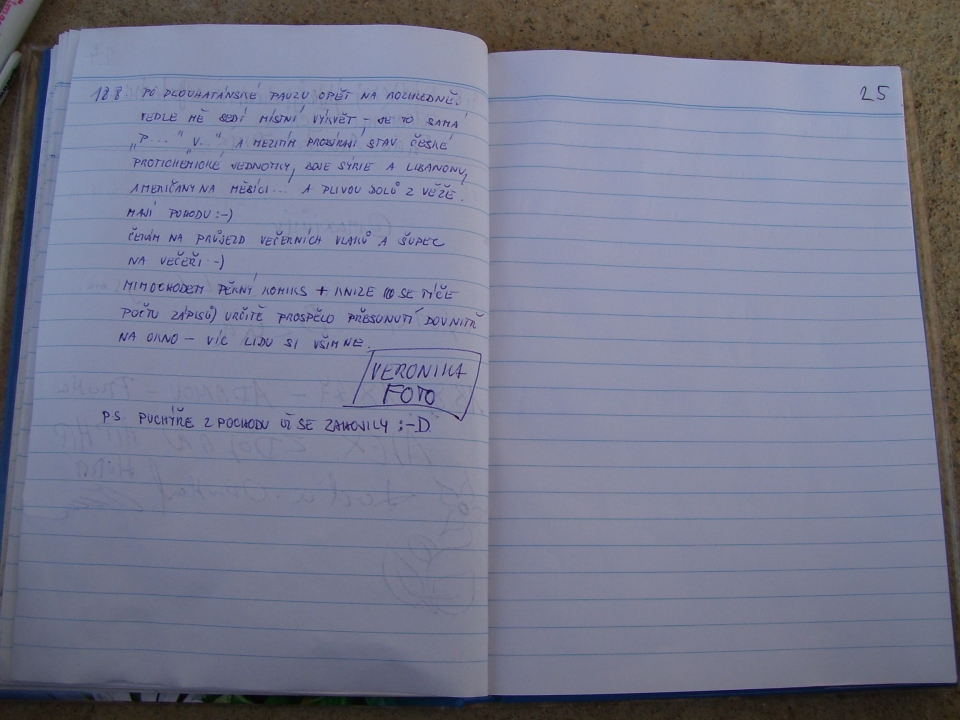 18.8 PO DLOUHATÁNSKÉ PAUZU OPĚT NA ROZHLEDNĚ.
VEDLE MĚ SEDÍ MÍSTNÍ VÝKVĚT – JE TO SAMÁ
„P..." „V.." A MEZITÍM PROBÍRAJÍ STAV ČESKÉ
PROTICHEMICKÉ JEDNOTKY, BOJE SÝRIE A LIBANONU,
AMERIČANY NA MĚSÍCI... A PLIVOU DOLŮ Z VĚŽE.
MAJÍ POHODU :-)
ČEKÁM NA PRŮJEZD VEČERNÍCH VLAKŮ A ŠUPEC
NA VEČEŘI :-)
MIMOCHODEM PĚKNÝ KOMIKS + KNIZE (CO SE TÝČE
POČTU ZÁPISŮ) URČITĚ PROSPĚLO PŘESUNUTÍ DOVNITŘ
NA OKNO – VÍC LIDU SI VŠIMNE.
VERONIKA
FOTO
P.S. PUCHÝŘE Z POCHODU UŽ SE ZAHOJILY :-D
25